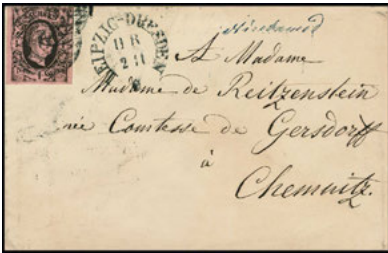 LEIPZIG-DRESDEN
A Madame
Madame de Reitzenstein
née Comtesse de Gersdorff
à
Chemnitz.